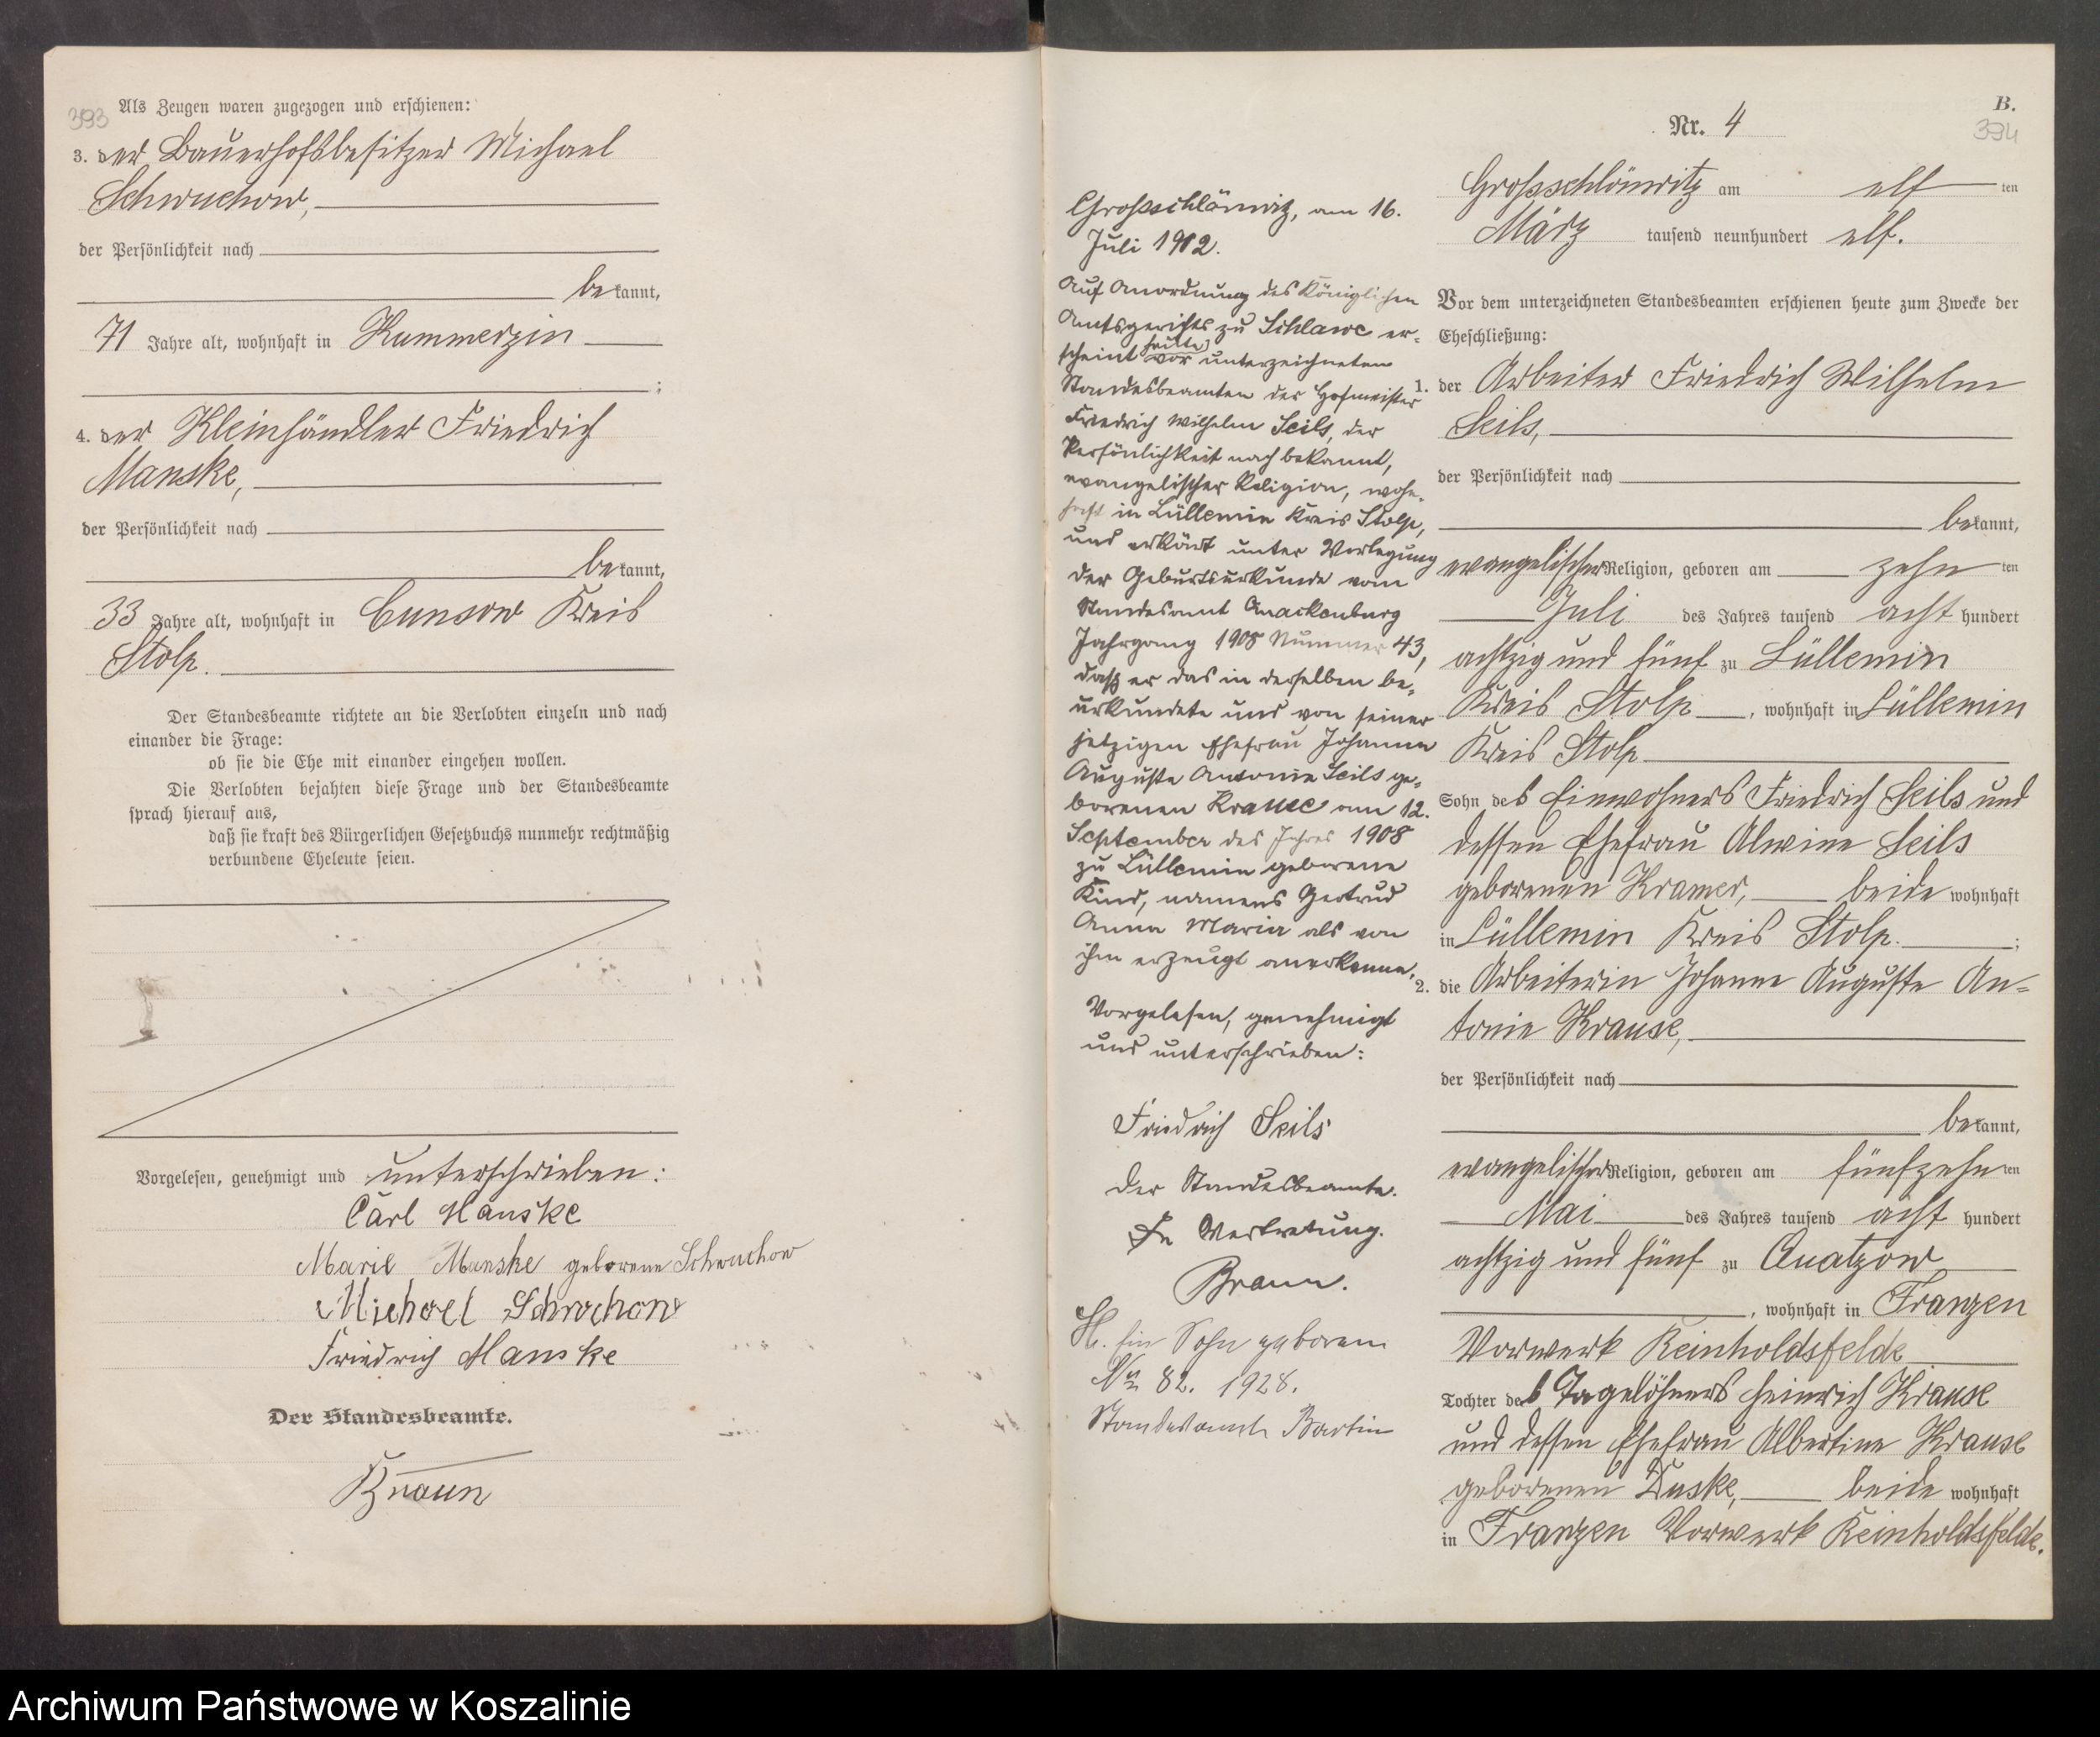 393
Als Zeugen waren zugezogen und erschienen:
3. der Bauerhofsbesitzer Michael
Schwuchow,
der Persönlichkeit nach
bekannt,
71 Jahre alt, wohnhaft in Kummerzin
;
4. der Kleinhändler Friedrich
Manske,
der Persönlichkeit nach
bekannt,
33 Jahre alt, wohnhaft in Cunsow Kreis
Stolp.
Der Standesbeamte richtete an die Verlobten einzeln und nach
einander die Frage:
ob sie die Ehe mit einander eingehen wollen.
Die Verlobten bejahten diese Frage und der Standesbeamte
sprach hierauf aus,
daß sie kraft des Bürgerlichen Gesetzbuchs nunmehr rechtmäßig
verbundene Eheleute seien.
Vorgelesen, genehmigt und unterschrieben:
Carl Manske
Marie Manske geborene Schwuchow
Michael Schwuchow
Friedrich Manske
Der Standesbeamte.
Braun
Großschlönwitz, am 16.
Juli 1912.
Auf Anordnung des Königlichen
Amtsgerichts zu Schlawe er-
scheint heute vor unterzeichneten
Standesbeamten der Hofmeister
Friedrich Wilhelm Seils, der
Persönlichkeit nach bekannt,
evangelischer Religion, wohn-
haft in Lüllemin Kreis Stolp,
und erklärt unter Vorlegung
der Geburtsurkunde vom
Standesamt Quackenburg
Jahrgang 1908 Nummer 43,
daß er das in derselben be-
urkundete und von seiner
jetzigen Ehefrau Johanne
Auguste Antonie Seils ge-
borenen Krause am 12.
September des Jahres 1908
zu Lüllemin geborene
Kind, namens Gertrud
Anna Maria als von
ihm erzeugt anerkenne.
Vorgelesen, genehmigt
und unterschrieben:
Friedrich Seils
Der Standesbeamte.
In Vertretung.
Braun.
Ein Sohn geboren
No 82. 1928.
Standesamt Bartin
B.
394
Nr. 4
Großschlönwitz am elf ten
März tausend neunhundert elf.
Vor dem unterzeichneten Standesbeamten erschienen heute zum Zwecke der
Eheschließung:
1. der Arbeiter Friedrich Wilhelm
Seils,
der Persönlichkeit nach
bekannt,
evangelischer Religion, geboren am zehn ten
Juli des Jahres tausend acht hundert
achtzig und fünf zu Lüllemin
Kreis Stolp, wohnhaft in Lüllemin
Kreis Stolp
Sohn des Einwohners Friedrich Seils und
dessen Ehefrau Alwine Seils
geborenen Kramer, beide wohnhaft
in Lüllemin Kreis Stolp. ;
2. die Arbeiterin Johanne Auguste An-
tonie Krause,
der Persönlichkeit nach
bekannt,
evangelischer Religion, geboren am fünfzehn ten
Mai des Jahres tausend acht hundert
achtzig und fünf zu Quatzow
, wohnhaft in Franzen
Vorwerk Reinholdsfelde
Tochter des Tagelöhners Heinrich Krause
und dessen Ehefrau Albertine Krause
geborenen beide wohnhaft
in Franzen Vorwerk Reinholdsfelde.
Archiwum Państwowe w Koszalinie